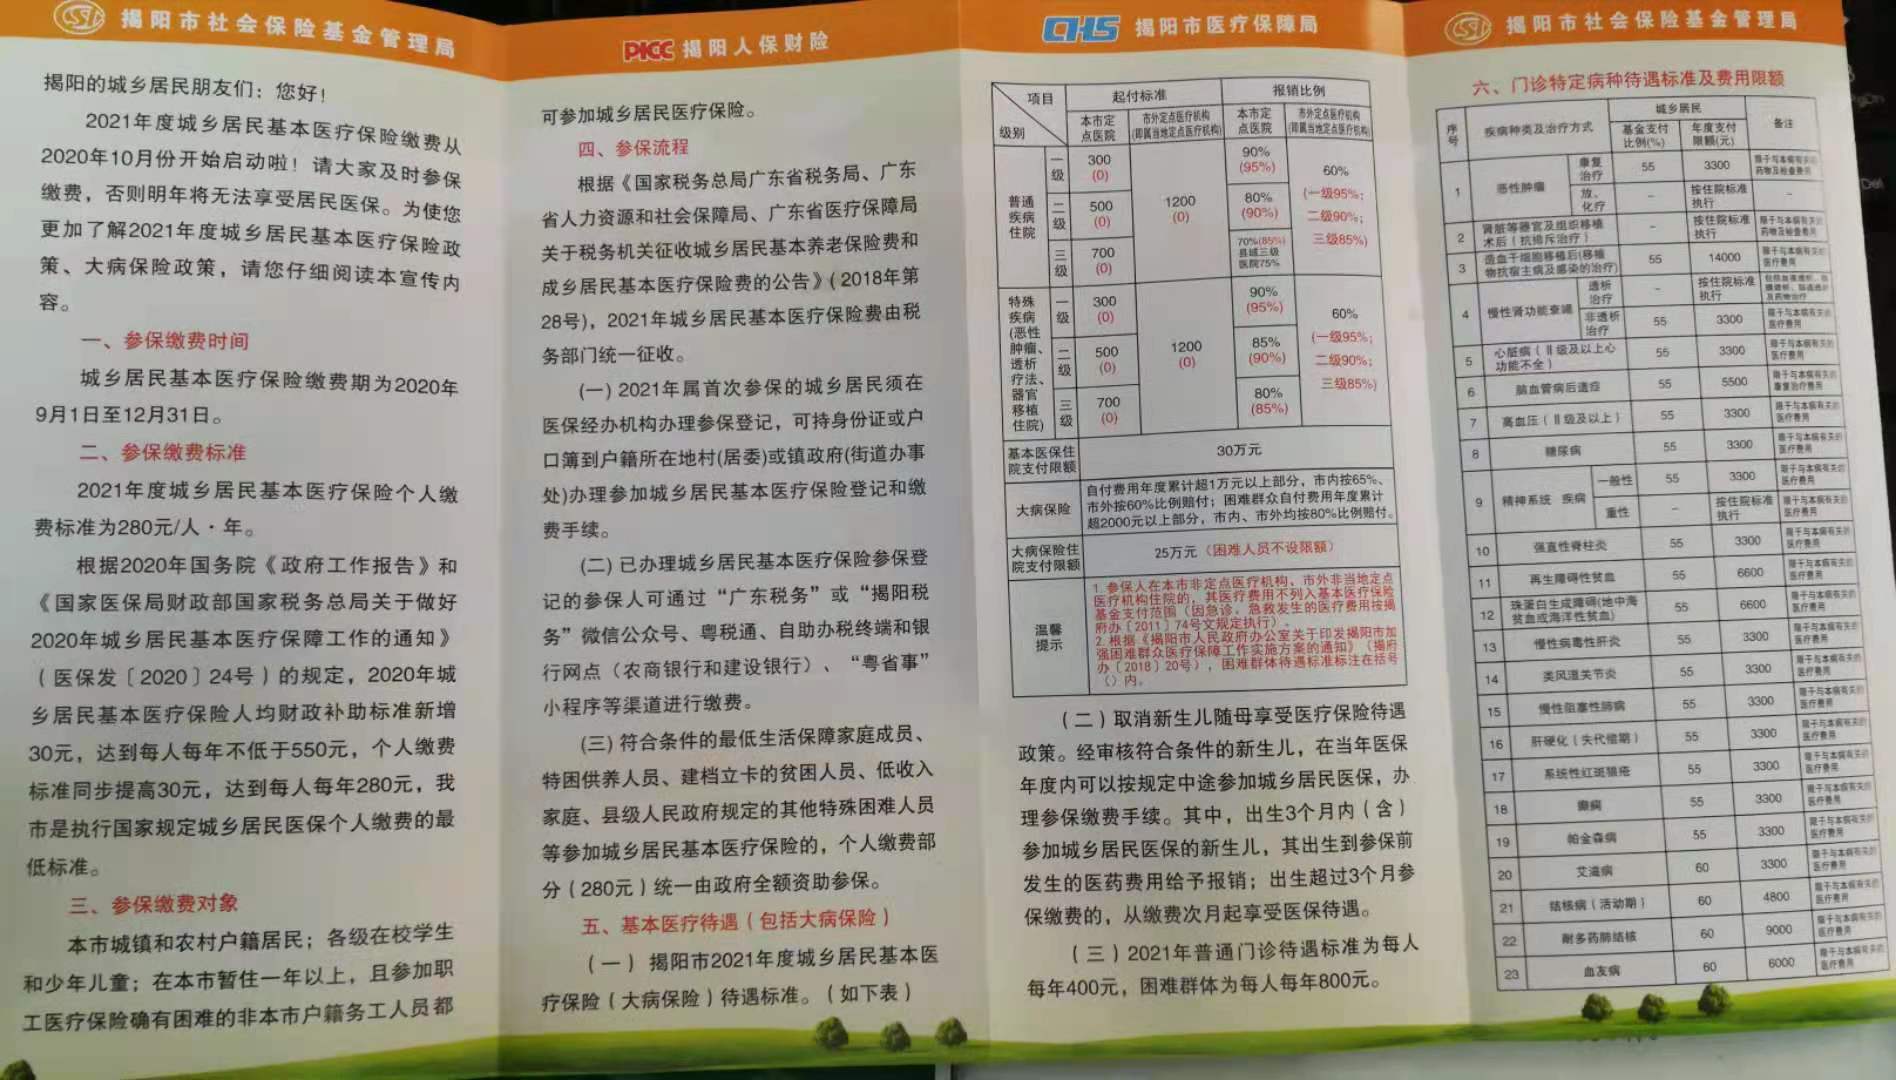 揭阳市社会保险基金管理局
揭阳的城乡居民朋友们：您好！
2021年度城乡居民基本医疗保险缴费从
2020年10月份开始启动啦！请大家及时参保
缴费，否则明年将无法享受居民医保。为使您
更加了解2021年度城乡居民基本医疗保险政
策、大病保险政策，请您仔细阅读本宣传内
容。
一、参保缴费时间
城乡居民基本医疗保险缴费期为2020年
9月1日至12月31日。
二、参保缴费标准
2021年度城乡居民基本医疗保险个人缴
费标准为280元/人·年。
根据2020年国务院《政府工作报告》和
《国家医保局财政部国家税务总局关于做好
2020年城乡居民基本医疗保障工作的通知》
（医保发〔2020〕24号）的规定，2020年城
乡居民基本医疗保险人均财政补助标准新增
30元，达到每人每年不低于550元，个人缴费
标准同步提高30元，达到每人每年280元，我
市是执行国家规定城乡居民医保个人缴费的最
低标准。
三、参保缴费对象
本市城镇和农村户籍居民；各级在校学生
和少年儿童；在本市暂住一年以上，且参加职
工医疗保险确有困难的非本市户籍务工人员都
PICC 揭阳人保财险
可参加城乡居民医疗保险。
四、参保流程
根据《国家税务总局广东省税务局、广东
省人力资源和社会保障局、广东省医疗保障局
关于税务机关征收城乡居民基本养老保险费和
成乡居民基本医疗保险费的公告》（2018年第
28号），2021年城乡居民基本医疗保险费由税
务部门统一征收。
（一）2021年属首次参保的城乡居民须在
医保经办机构办理参保登记，可持身份证或户
口簿到户籍所在地村(居委)或镇政府(街道办事
处)办理参加城乡居民基本医疗保险登记和缴
费手续。
（二）已办理城乡居民基本医疗保险参保登
记的参保人可通过“广东税务”或“揭阳税
务”微信公众号、粤税通、自助办税终端和银
行网点（农商银行和建设银行）、“粤省事”
小程序等渠道进行缴费。
（三）符合条件的最低生活保障家庭成员、
特困供养人员、建档立卡的贫困人员、低收入
家庭、县级人民政府规定的其他特殊困难人员
等参加城乡居民基本医疗保险的，个人缴费部
分（280元）统一由政府全额资助参保。
五、基本医疗待遇（包括大病保险）
（一）揭阳市2021年度城乡居民基本医
疗保险（大病保险）待遇标准。（如下表）
CHS 揭阳市医疗保障局
项目 级别 起付标准 报销比例
本市定点医院 市外定点医疗机构(即属当地定点医疗机构) 本市定点医院 市外定点医疗机构(即属当地定点医疗机构)
普通疾病住院 一级 300(0) 1200(0) 90%(95%) 60%(一级95%；二级90%；三级85%)
二级 500(0) 80%(90%)
三级 700(0) 70%(85%)县域三级医院75%
特殊疾病(恶性肿瘤、透析疗法、器官移植住院) 一级 300(0) 1200(0) 90%(95%) 60%(一级95%；二级90%；三级85%)
二级 500(0) 85%(90%)
三级 700(0) 80%(85%)
基本医保住院支付限额 30万元
大病保险 自付费用年度累计超1万元以上部分，市内按65%、
市外按60%比例赔付；困难群众自付费用年度累计
超2000元以上部分，市内、市外均按80%比例赔付。
大病保险住院支付限额 25万元（困难人员不设限额）
温馨提示 1.参保人在本市非定点医疗机构、市外非当地定点
医疗机构住院的，其医疗费用不列入基本医疗保险
基金支付范围（因急诊、急救发生的医疗费用按揭
府办〔2011〕74号文规定执行）。
2.根据《揭阳市人民政府办公室关于印发揭阳市加
强困难群众医疗保障工作实施方案的通知》（揭府
办〔2018〕20号），困难群体待遇标准标注在括号
（）内。
（二）取消新生儿随母享受医疗保险待遇
政策。经审核符合条件的新生儿，在当年医保
年度内可以按规定中途参加城乡居民医保，办
理参保缴费手续。其中，出生3个月内（含）
参加城乡居民医保的新生儿，其出生到参保前
发生的医药费用给予报销；出生超过3个月参
保缴费的，从缴费次月起享受医保待遇。
（三）2021年普通门诊待遇标准为每人
每年400元，困难群体为每人每年800元。
揭阳市社会保险基金管理局
六、门诊特定病种待遇标准及费用限额
序号 疾病种类及治疗方式 城乡居民 备注
基金支付比例(%) 年度支付限额(元)
1 恶性肿瘤 康复治疗 55 3300 限于与本病有关的药物及检查费用
放、化疗 - 按住院标准执行 -
2 肾脏等器官及组织移植术后（抗排斥治疗） - 按住院标准执行 限于与本病有关的药物及检查费用
3 造血干细胞移植后(移植物抗宿主病及感染的治疗) 55 14000 限于与本病有关的医疗费用
4 慢性肾功能衰竭 透析治疗 - 按住院标准执行
非透析治疗 55 3300 限于与本病有关的医疗费用
5 心脏病（Ⅱ级及以上心功能不全） 55 3300 限于与本病有关的医疗费用
6 脑血管病后遗症 55 5500 限于与本病有关的康复治疗费用
7 高血压（Ⅱ级及以上） 55 3300 限于与本病有关的医疗费用
8 糖尿病 55 3300 限于与本病有关的医疗费用
9 精神系统 疾病 一般性 55 3300 限于与本病有关的医疗费用
重性 - 按住院标准执行 限于与本病有关的医疗费用
10 强直性脊柱炎 55 3300 限于与本病有关的医疗费用
11 再生障碍性贫血 55 6600 限于与本病有关的医疗费用
12 珠蛋白生成障碍(地中海贫血或海洋性贫血) 55 6600 限于与本病有关的医疗费用
13 慢性病毒性肝炎 55 3300 限于与本病有关的医疗费用
14 类风湿关节炎 55 3300 限于与本病有关的医疗费用
15 慢性阻塞性肺病 55 3300 限于与本病有关的医疗费用
16 肝硬化（失代偿期） 55 3300 限于与本病有关的医疗费用
17 系统性红斑狼疮 55 3300 限于与本病有关的医疗费用
18 癫痫 55 3300 限于与本病有关的医疗费用
19 帕金森病 55 3300 限于与本病有关的医疗费用
20 艾滋病 60 3300 限于与本病有关的医疗费用
21 结核病（活动期） 60 4800 限于与本病有关的医疗费用
22 耐多药肺结核 60 9000 限于与本病有关的医疗费用
23 血友病 60 6000 限于与本病有关的医疗费用